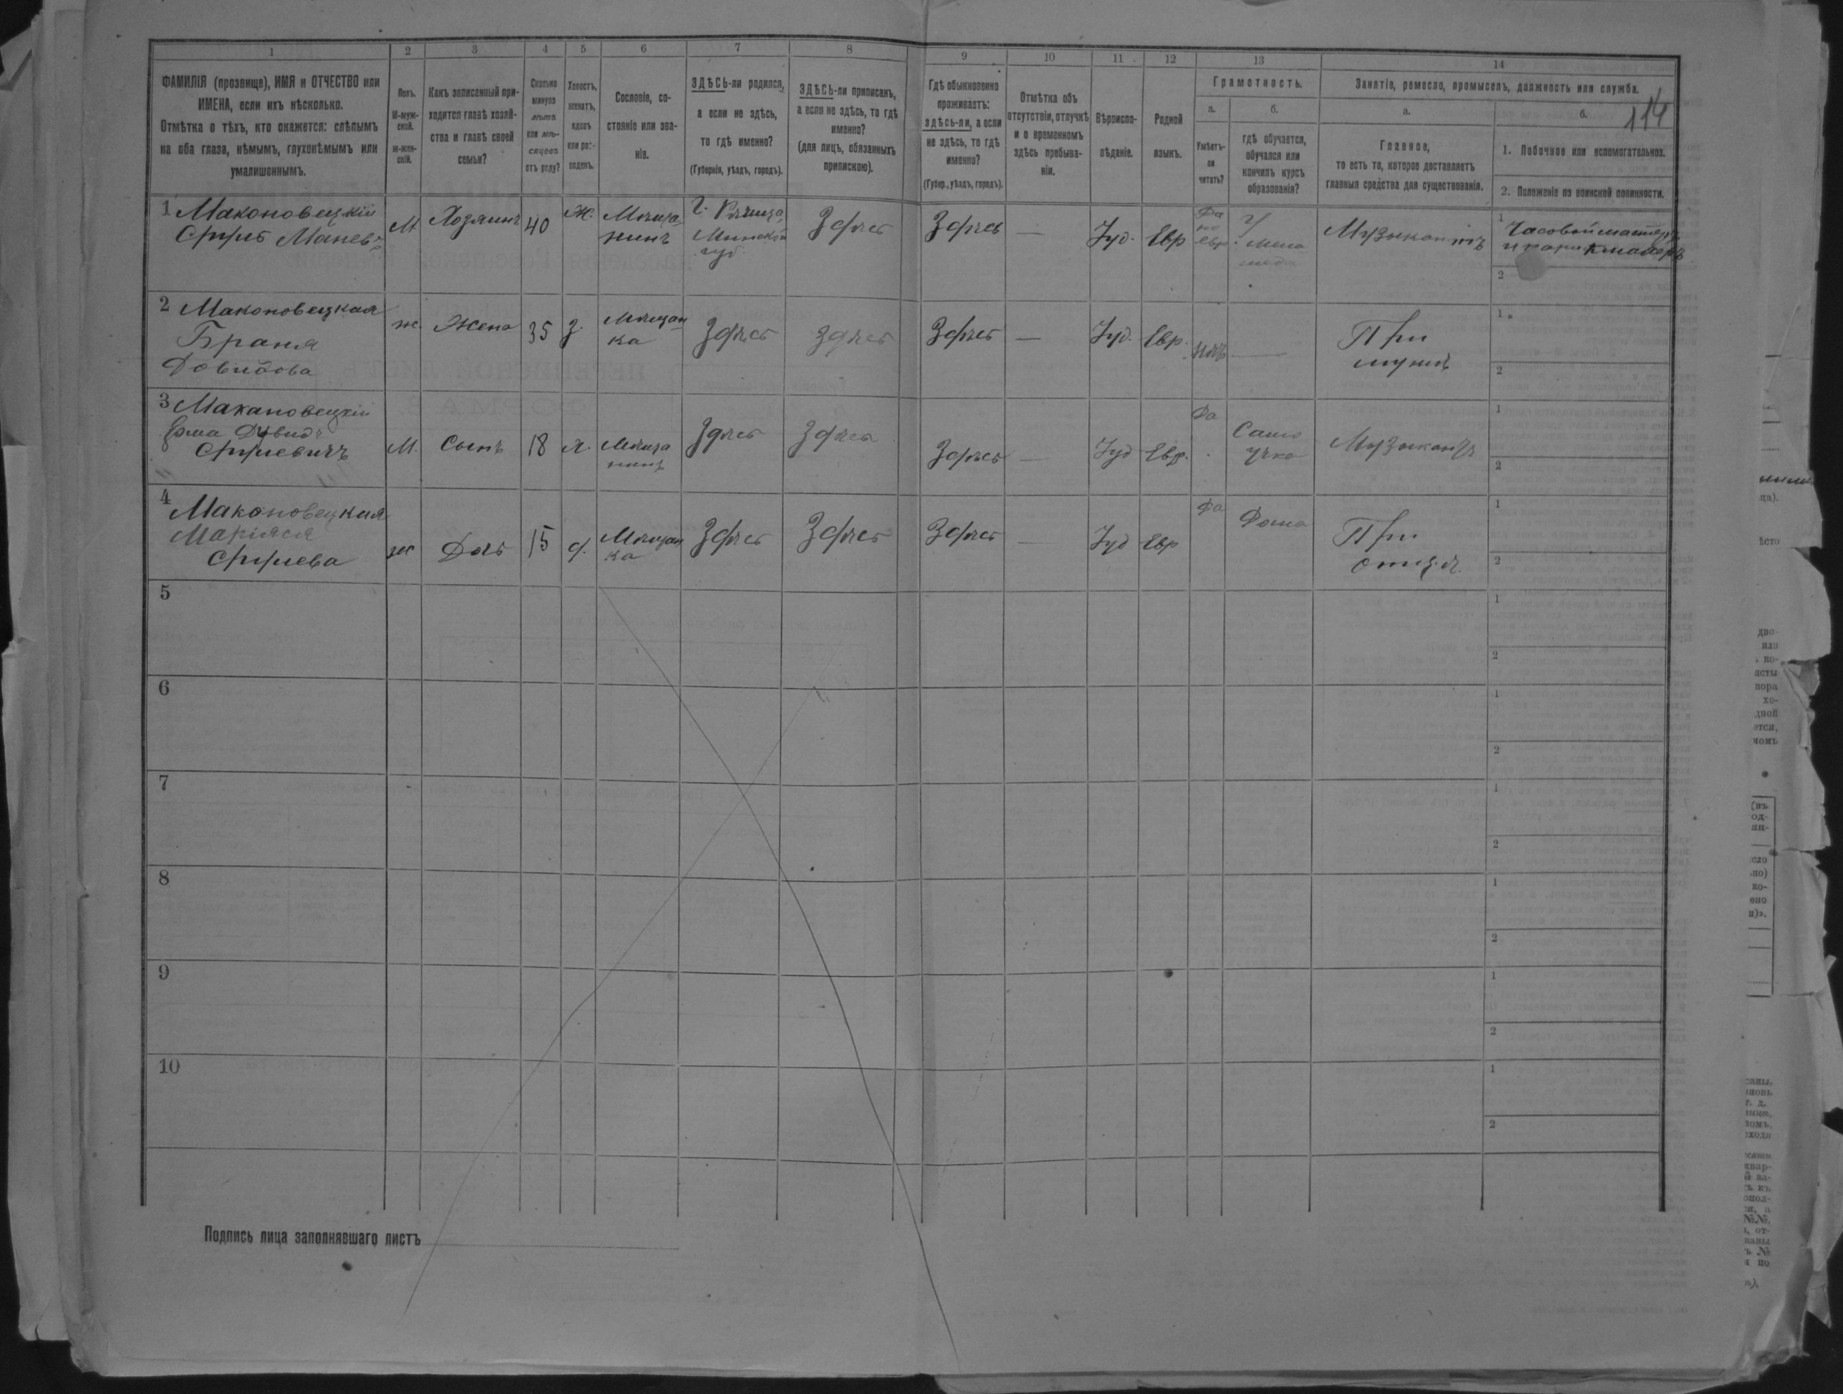 1 2 3 4 5 6 7 8 9 10 11 12 13 14
114
ФАМИЛІЯ (прозвище), ИМЯ и ОТЧЕСТВО или
ИМЕНА, если ихъ нѣсколько.
Отмѣтка о тѣхъ, кто окажется: слѣпымъ
на оба глаза, нѣмымъ, глухонѣмымъ или
умалишеннымъ.
Полъ.
М-муж-
ской.
ж-жен-
скій.
Какъ записанный при-
ходится главѣ хозяй-
ства и главѣ своей
семьи?
Сколько
минуло
лѣтъ
или мѣ-
сяцевъ
отъ роду?
Холостъ,
женатъ,
вдовъ
или раз-
веденъ.
Сословіе, со-
стояніе или зва-
ніе.
ЗДѢСЬ-ли родился,
а если не здѣсь,
то гдѣ именно?
(Губернія, уѣздъ, городъ).
ЗДѢСЬ-ли приписанъ,
а если не здѣсь, то гдѣ
именно?
(для лицъ, обязанныхъ
припискою).
Гдѣ обыкновенно
проживаетъ:
здѣсь-ли, а если
не здѣсь, то гдѣ
именно?
(Губер., уѣздъ, городъ).
Отмѣтка объ
отсутствіи, отлучкѣ
и о временномъ
здѣсь пребыва-
ніи.
Вѣроиспо-
вѣданіе.
Родной
языкъ.
Грамотность.
а.
Умѣетъ-
ли
читать?
б.
гдѣ обучается,
обучался или
кончилъ курсъ
образованія?
Занятіе, ремесло, промыселъ, должность или служба.
а.
Главное,
то есть то, которое доставляетъ
главныя средства для существованія.
б.
1. Побочное или вспомогательное.
2. Положеніе по воинской повинности.
1 Маконовецкій
М Хозяинъ 40 Ж. Мѣща
нинъ
г. Рѣчица
Минской
губ.
Здѣсь Здѣсь — Іуд. Евр
Да
по
евр
Музыкантъ
1 Часовой мастеръ
2
2 Маконовецкая
Браня
Довидова
ж. Жена 35 З. Мѣщан
ка
Здѣсь Здѣсь Здѣсь — Іуд. Евр. нѣтъ —
При
мужѣ
1
2
3 Макановецкій
М. Сынъ 18 х. Мѣща
нинъ
Здѣсь Здѣсь Здѣсь — Іуд Евр.
Да
Само
учка
Музыкантъ
1
2
4 Маконовецкая
ж Дочь 15 д. Мѣщан
ка
Здѣсь Здѣсь Здѣсь — Іуд Евр
Да
Дома
При
отцѣ
1
2
5 1 2
6 1 2
7 1 2
8 1 2
9 1 2
10 1 2
Подпись лица заполнявшаго листъ